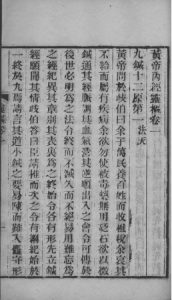 黃帝內經靈樞卷一
九鍼十二原第一法天
黃帝問於岐伯曰余子萬民養百姓而收租稅余哀其
不給而屬有疾病余欲勿使被毒藥無用砭石欲以微
鍼通其經脈調其血氣營其逆順出入之會令可傳於
後世必明為之法令終而不滅久而不絕易用難忘為
之經紀異其章別其表裏為之終始令各有形先立鍼
經願聞其情岐伯答曰臣請推而次之令有綱紀始於
一終於九焉請言其道小鍼之要易陳而難入麤守形